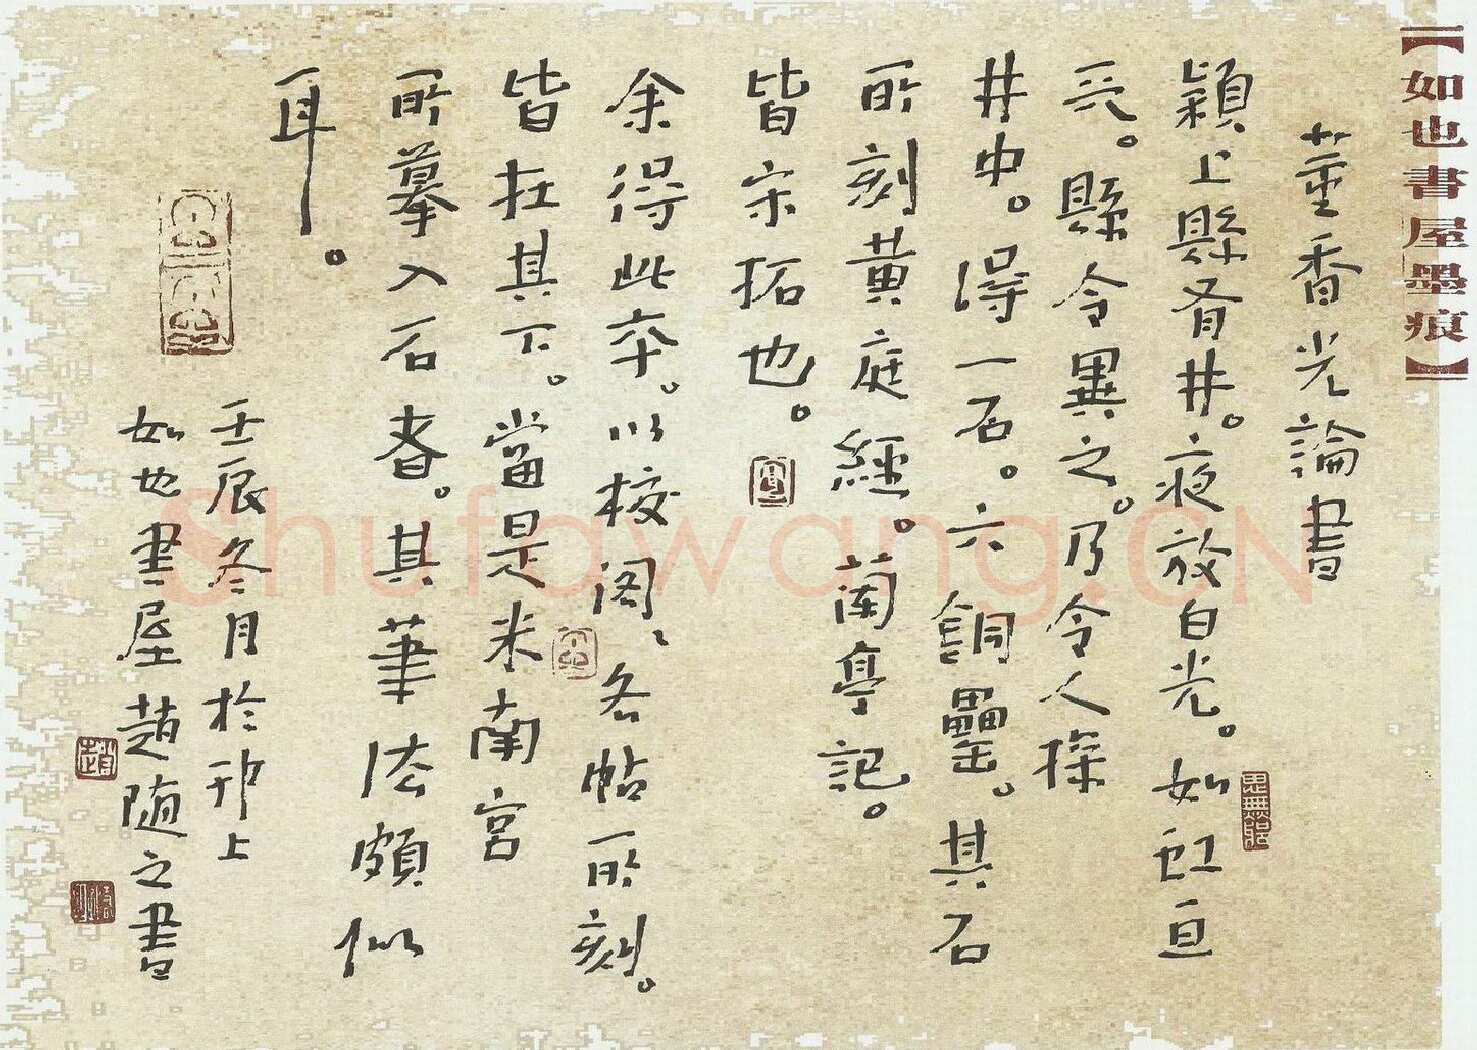 【如也書屋墨痕】
董香光論書
穎上縣有井。夜放白光。如虹亘
天。縣令異之。乃令人探
井中。得一石。六銅罍。其石
所刻黄庭經。蘭亭記。
皆宋拓也。
余得此本。以校閣、各帖所刻。
皆在其下。當是米南宮
所摹入石者。其筆法頗似
耳。
壬辰冬月於邗上
如也書屋趙随之書
趙
Shufawang.CN